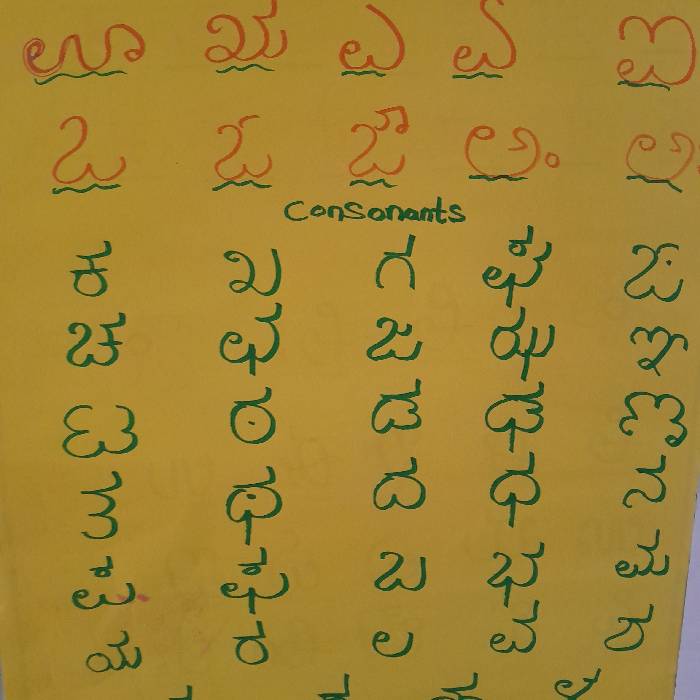 ಊ ಋ ಎ ಏ ಐ
ಒ ಓ ಔ ಅಂ ಅಃ
Consonants
ಕ ಖ ಗ ಘ ಙ
ಚ ಛ ಜ ಝ ಞ
ಟ ಠ ಡ ಢ ಣ
ತ ಥ ದ ಧ ನ
ಪ ಫ ಬ ಭ ಮ
ಯ ರ ಲ ವ ಶ